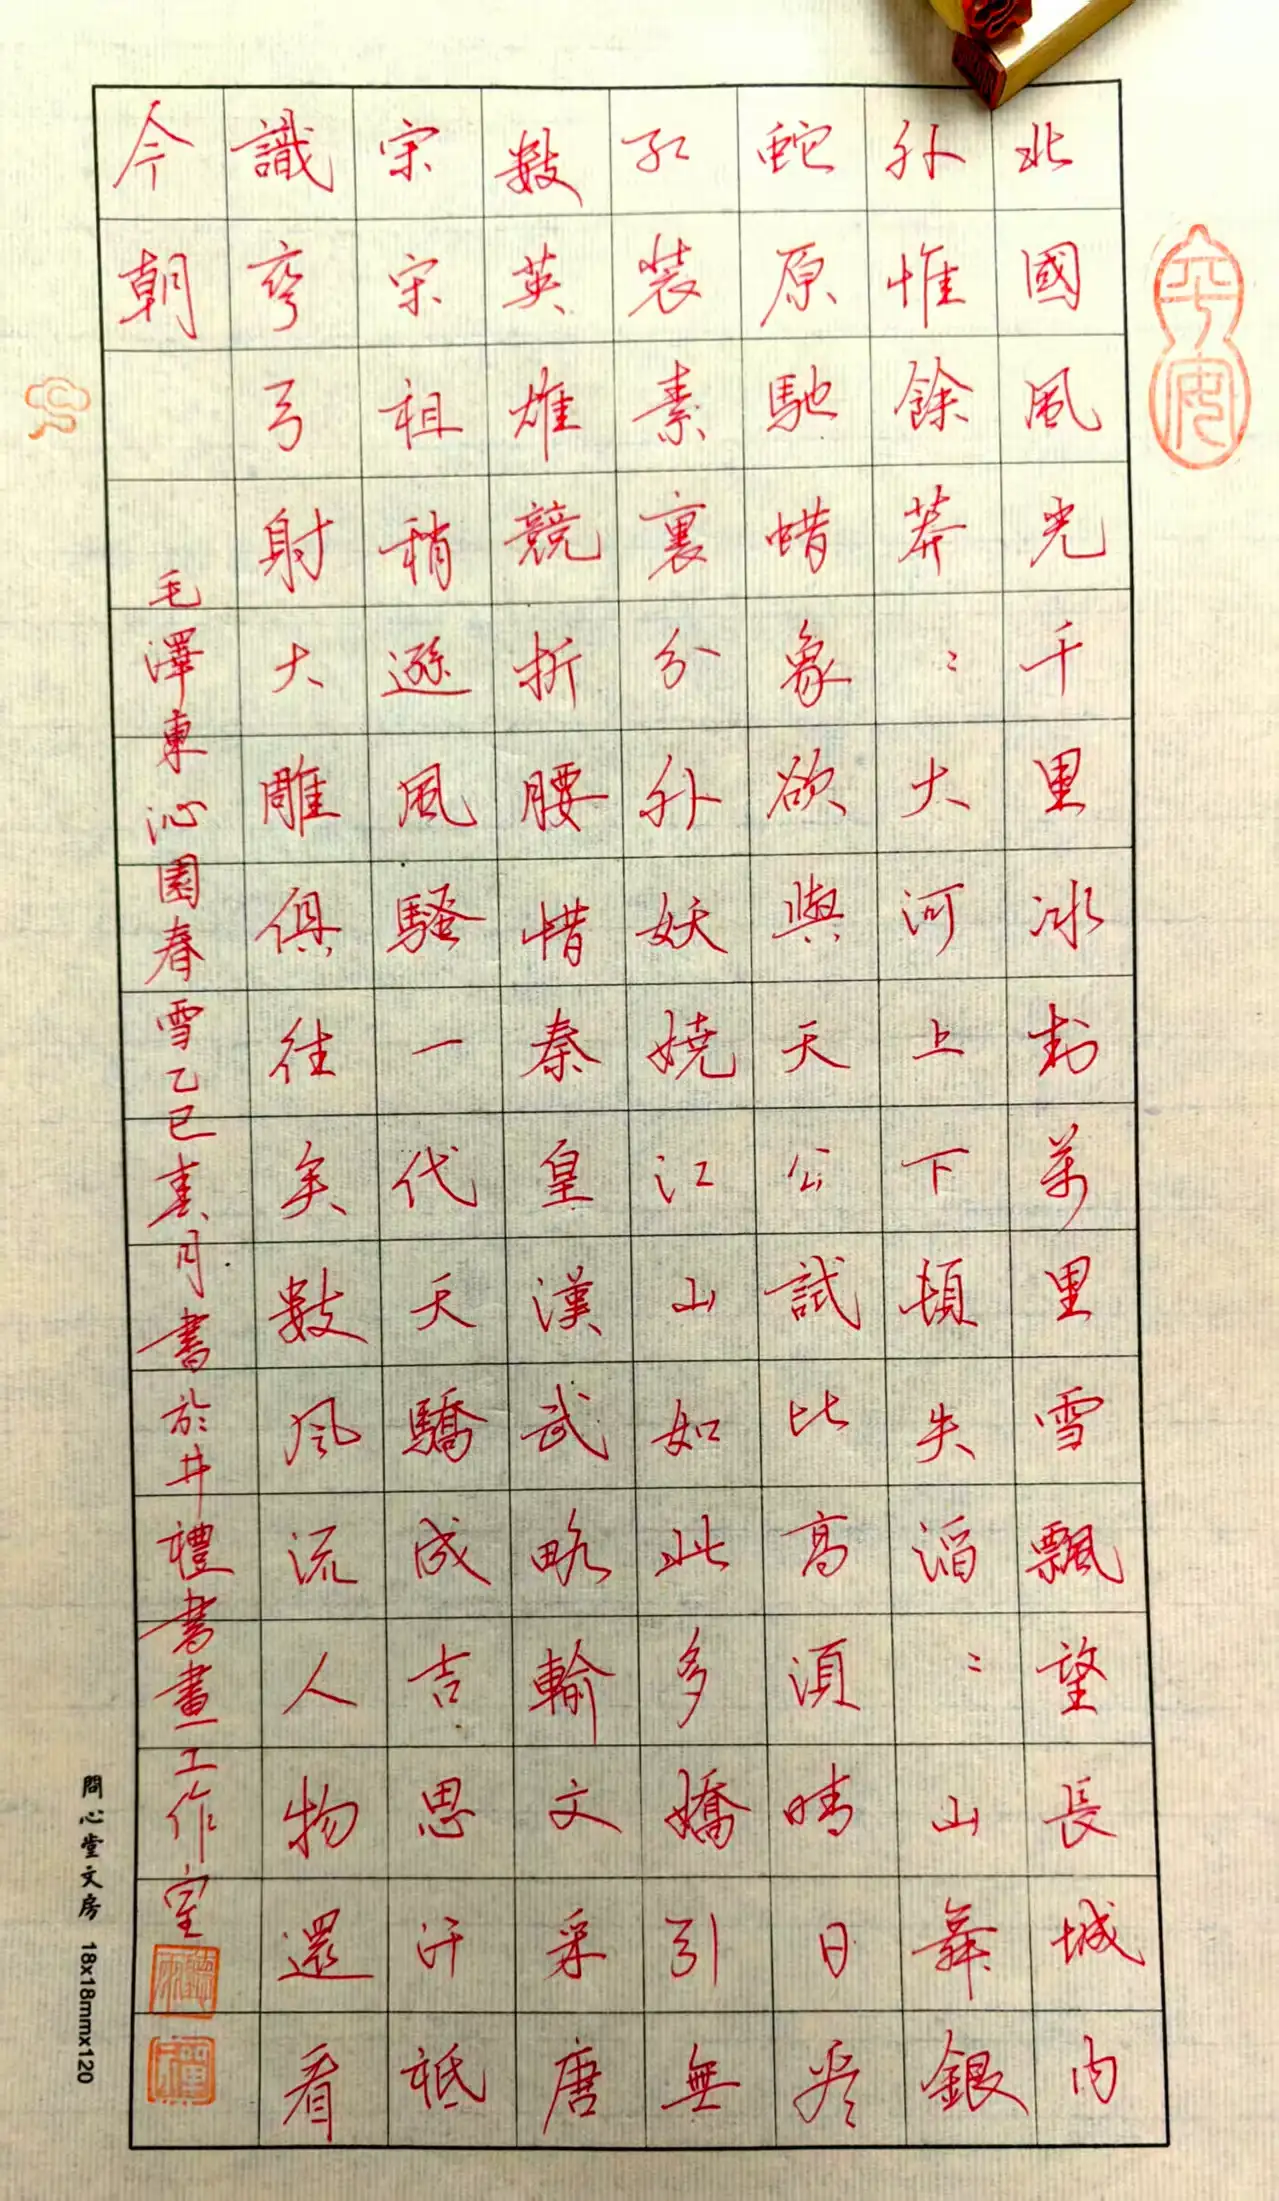 平安
北國風光千里冰封萬里雪飄望長城内
外惟餘莽〻大河上下頓失滔〻山舞銀
蛇原馳蜡象欲與天公試比高須晴日看
紅装素裹分外妖嬈江山如此多嬌引無
數英雄競折腰惜秦皇漢武略輸文采唐
宗宋祖稍遜風騷一代天驕成吉思汗祗
識彎弓射大雕俱往矣數風流人物還看
今朝
毛澤東沁園春雪乙巳春月書於井禮書畫工作室
問心堂文房 18x18mmx120